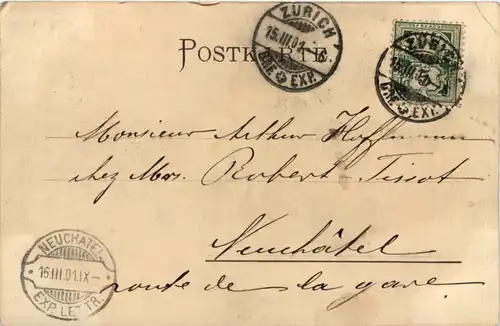 POSTKARTE.
ZÜRICH
15.III.01.-8
BRF. EXP.
ZÜRICH
BRF. EXP.
Monsieur Arthur Hoffmann
chez Mrs. Robert-Tissot
Neuchâtel
route de la gare
NEUCHATEL
16.III.01.IX-
EXP. LETTR.